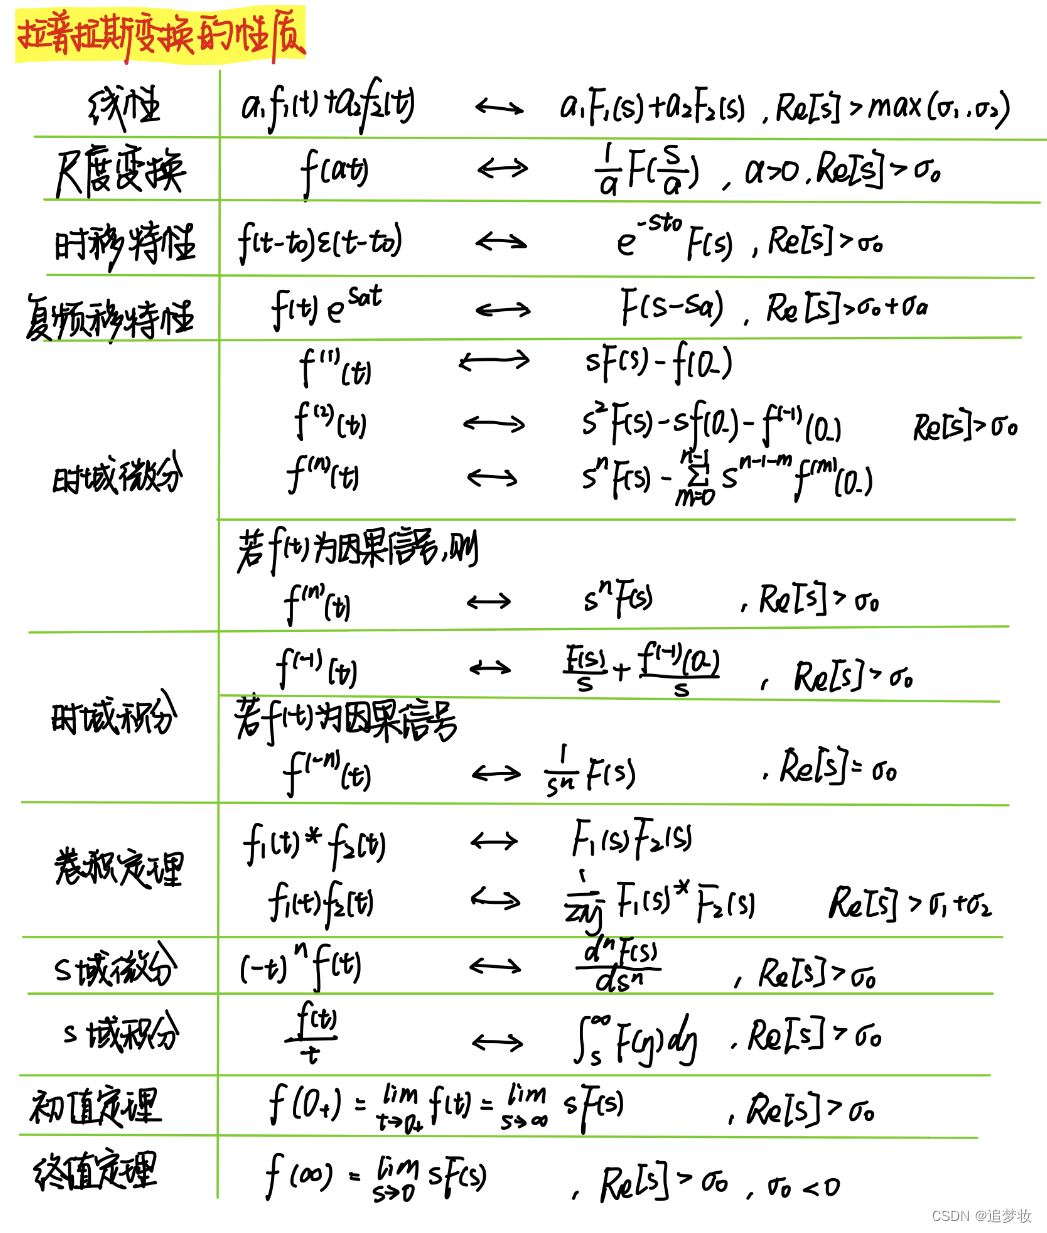 拉普拉斯变换的性质
线性 a₁f₁(t)+a₂f₂(t) ↔ a₁F₁(s)+a₂F₂(s) , Re[s]>max(σ₁,σ₂)
尺度变换 f(at) ↔ 1/a F(s/a) , a>0 , Re[s]>σ₀
时移特性 f(t-t₀)ε(t-t₀) ↔ e^(-st₀) F(s) , Re[s]>σ₀
复频移特性 f(t) e^(sat) ↔ F(s-sa) , Re[s]>σ₀+σa
f⁽¹⁾(t) ↔ sF(s)-f(0₋)
f⁽²⁾(t) ↔ s²F(s)-sf(0₋)-f⁽⁻¹⁾(0₋) Re[s]>σ₀
时域微分 f⁽ⁿ⁾(t) ↔ sⁿF(s)-∑_(m=0)^(n-1) s^(n-1-m) f^(m)(0₋)
若f(t)为因果信号,则
f⁽ⁿ⁾(t) ↔ sⁿF(s) , Re[s]>σ₀
f⁽⁻¹⁾(t) ↔ F(s)/s + f⁽⁻¹⁾(0₋)/s , Re[s]>σ₀
时域积分 若f(t)为因果信号
f⁽⁻ⁿ⁾(t) ↔ 1/sⁿ F(s) , Re[s]=σ₀
f₁(t)*f₂(t) ↔ F₁(s)F₂(s)
卷积定理 f₁(t)f₂(t) ↔ 1/2πj F₁(s)*F₂(s) Re[s]>σ₁+σ₂
S域微分 (-t)ⁿf(t) ↔ dⁿF(s)/dsⁿ , Re[s]>σ₀
s域积分 f(t)/t ↔ ∫_s^∞ F(η)dη , Re[s]>σ₀
初值定理 f(0₊)=lim_(t→0₊) f(t)=lim_(s→∞) sF(s) , Re[s]>σ₀
终值定理 f(∞)=lim_(s→0) sF(s) , Re[s]>σ₀ , σ₀<0
CSDN @追梦妆